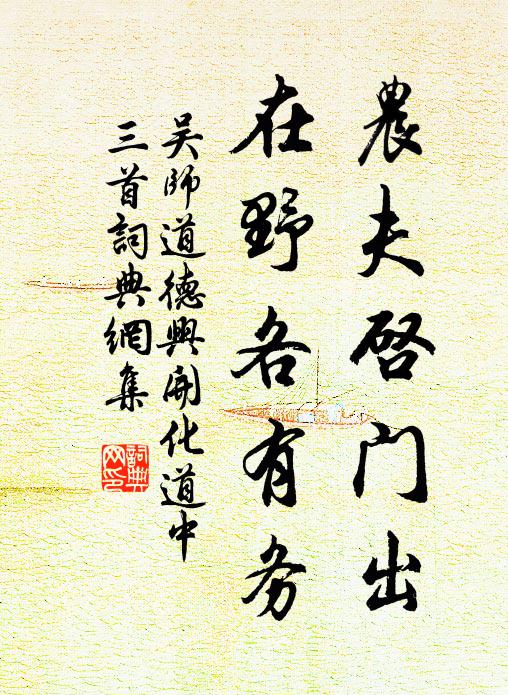 農夫启门出
在野各有务
吴師道德興開化道中
三首詞典網集
詞典
网印